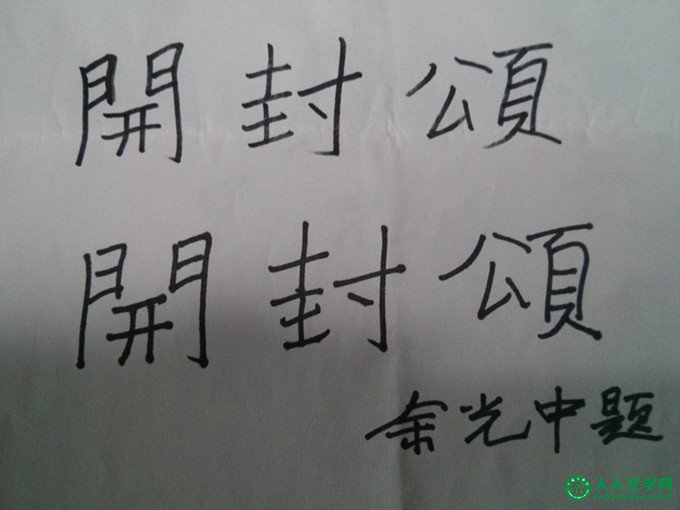 開封頌
開封頌
余光中题
人人文学网